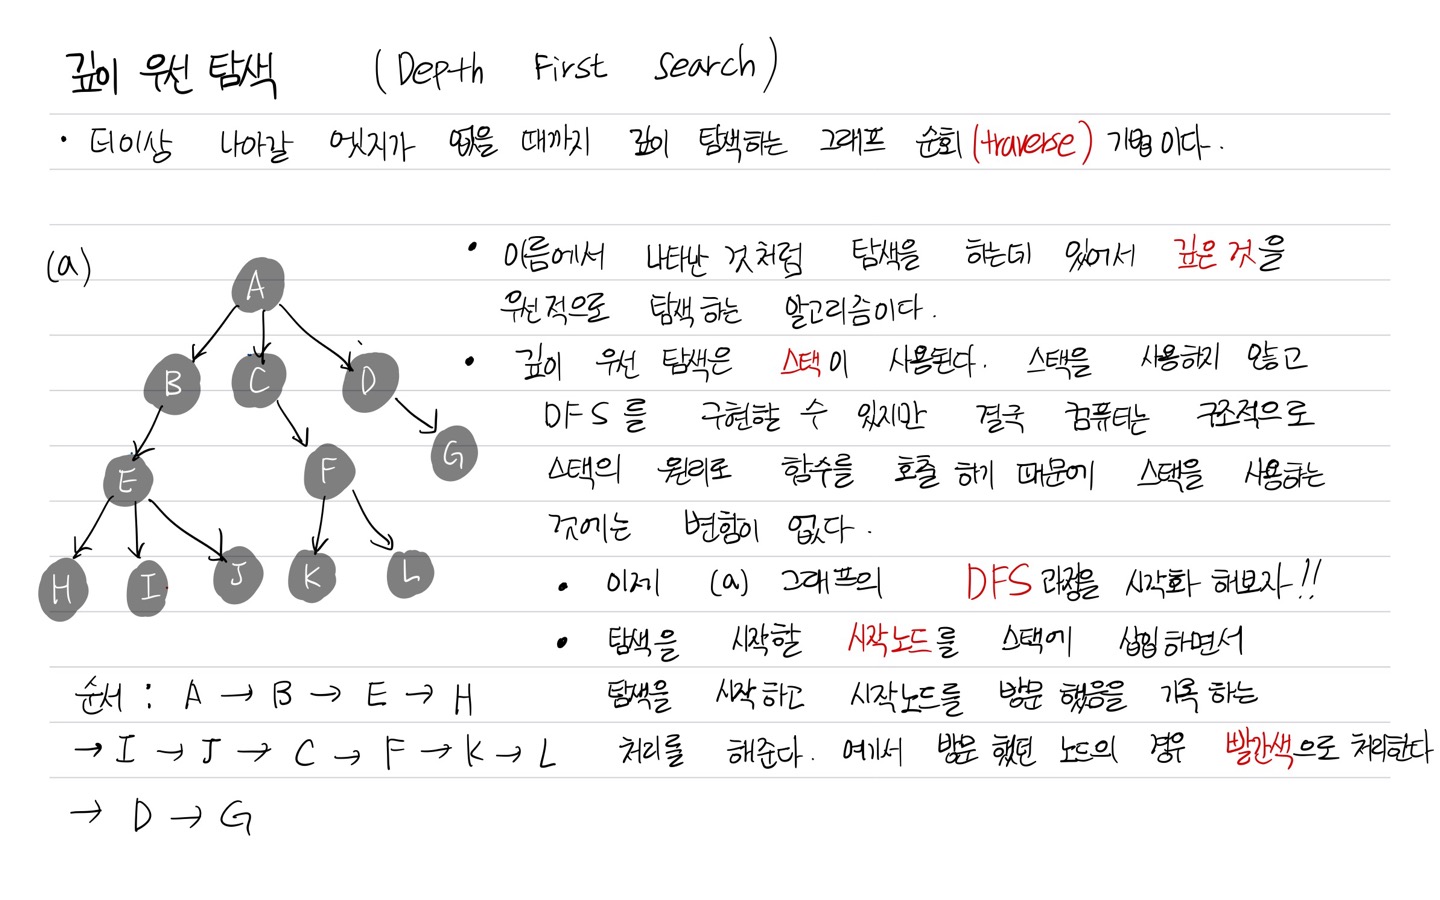 깊이 우선 탐색 (Depth First Search)
• 더이상 나아갈 엣지가 없을 때까지 깊이 탐색하는 그래프 순회(traverse) 기법이다.
(a)
A
B C D
E F G
H I J K L
• 이름에서 나타난 것처럼 탐색을 하는데 있어서 깊은 것을
우선적으로 탐색하는 알고리즘이다.
• 깊이 우선 탐색은 스택이 사용된다. 스택을 사용하지 않고
DFS를 구현할 수 있지만 결국 컴퓨터는 구조적으로
스택의 원리로 함수를 호출 하기 때문에 스택을 사용하는
것에는 변함이 없다.
• 이제 (a) 그래프의 DFS 과정을 시각화 해보자!!
• 탐색을 시작할 시작노드를 스택에 삽입하면서
탐색을 시작하고 시작노드를 방문 했음을 기록 하는
처리를 해준다. 여기서 방문 했던 노드의 경우 빨간색으로 처리한다
순서 : A → B → E → H
→ I → J → C → F → K → L
→ D → G